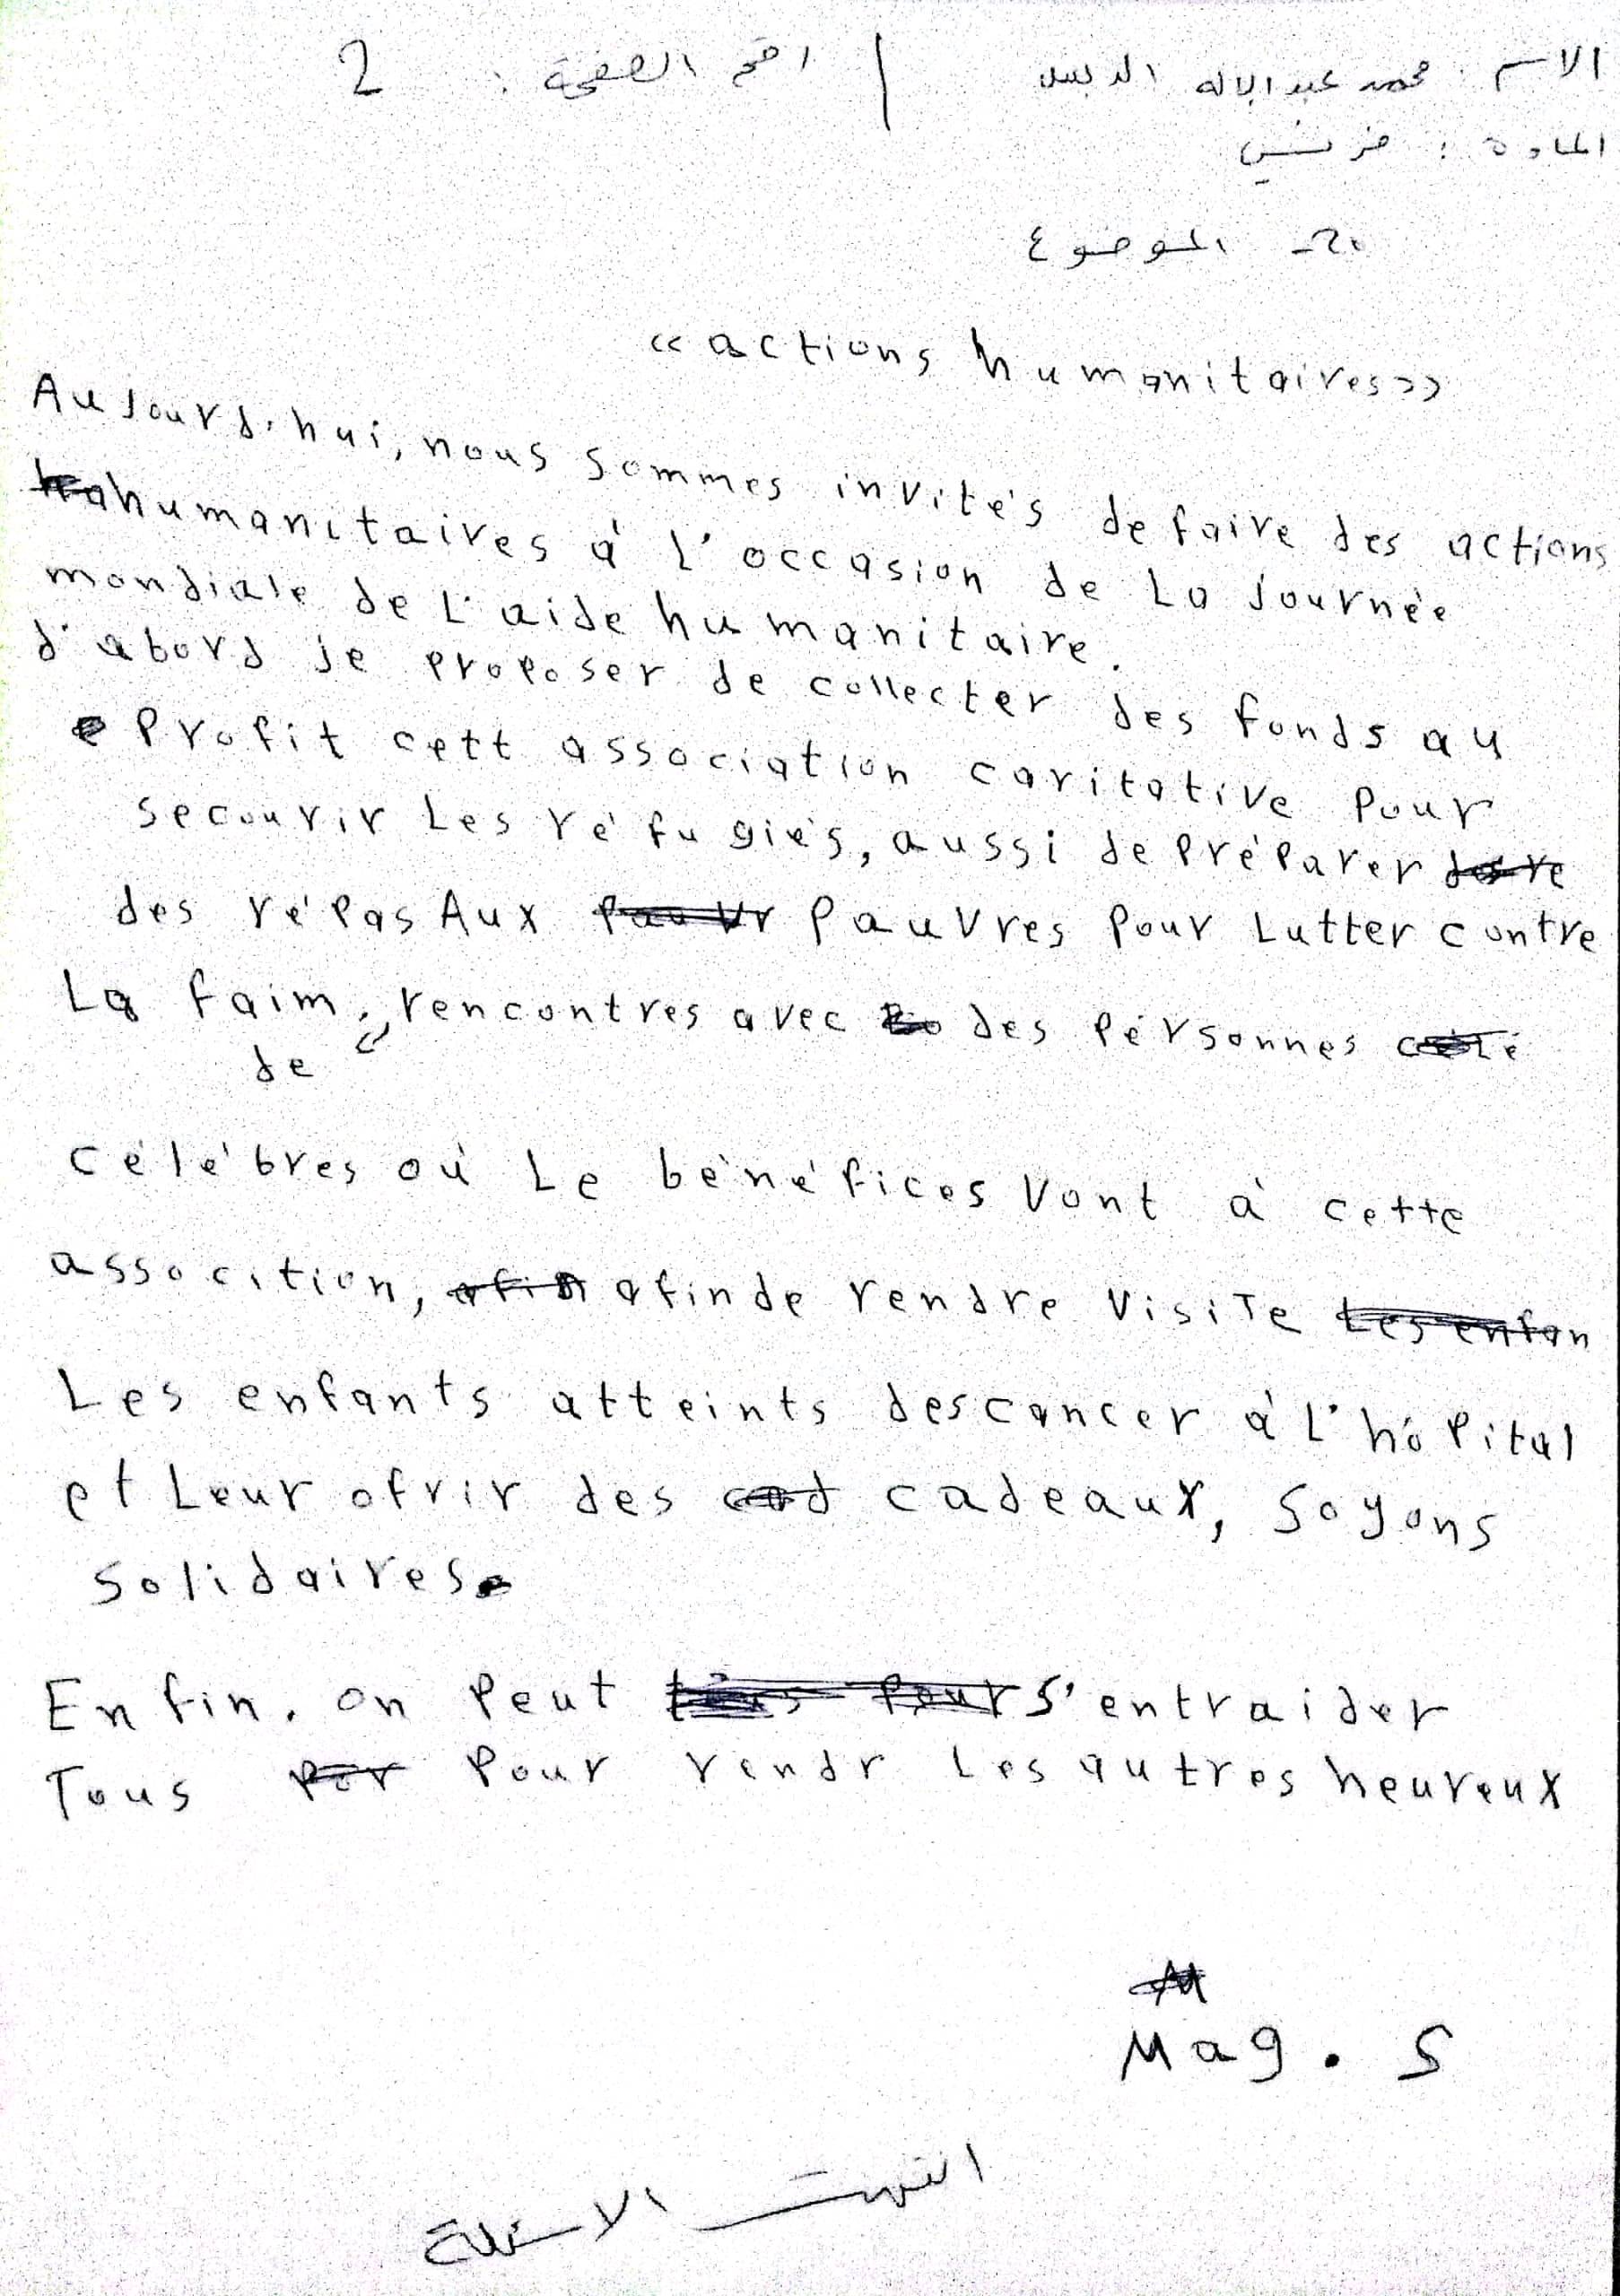 الاسم : محمد عبد الاله الدبس | رقم الصفحة : 2
المادة : فرنسي
2- الموضوع
<< actions humanitaires >>
Aujourd'hui, nous sommes invités de faire des actions
humanitaires à l'occasion de La journée
mondiale de L'aide humanitaire.
d'abord je proposer de collecter des fonds au
Profit cett association caritative Pour
secourir Les réfugiés, aussi de Préparer
des répas Aux Pauvres Pour Lutter contre
La faim, de rencontres avec des Pérsonnes
célébres où Le bénéfices Vont à cette
assocition, afin de rendre VisiTe
Les enfants atteints des cancer à L'hôpital
et Leur ofrir des cadeaux, Soyons
Solidaires.
En fin, on Peut s'entraider
Tous Pour rendr Les autres heureux
Mag. S
انتهت الاسئلة